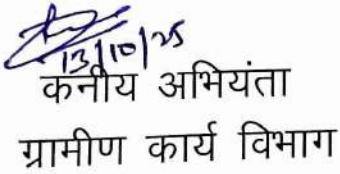 13/10/25
कनीय अभियंता
ग्रामीण कार्य विभाग